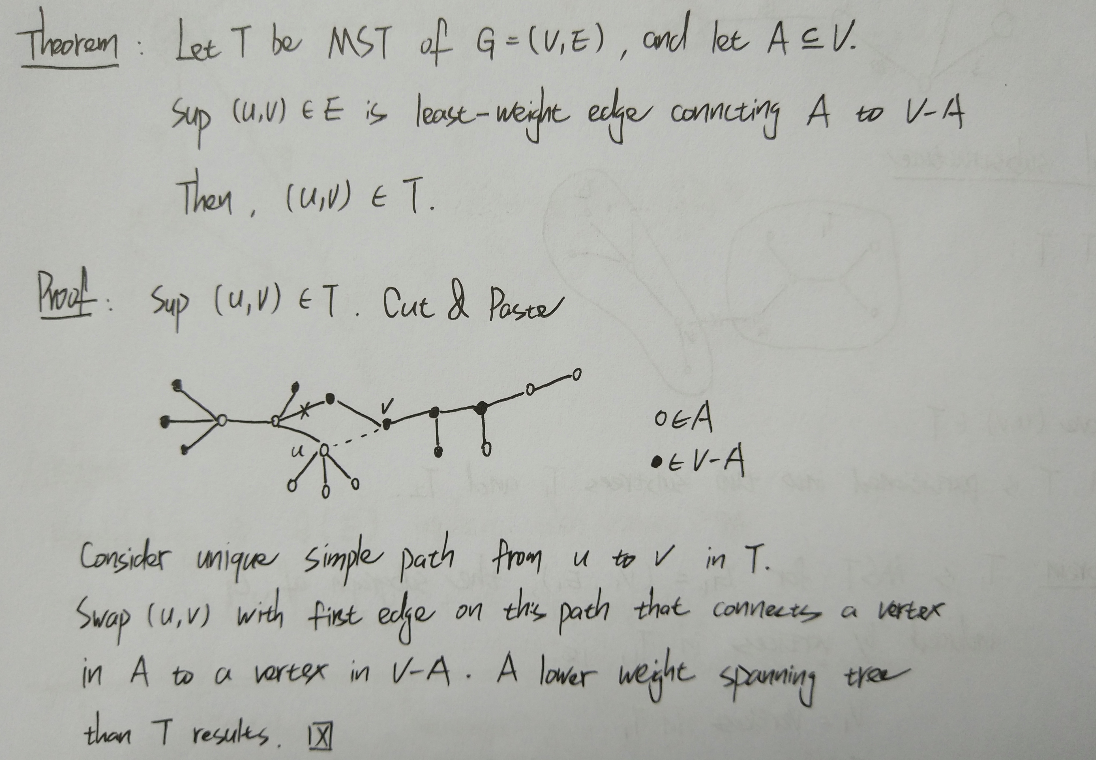 Theorem : Let T be MST of G = (V,E), and let A ⊆ V.
Sup (u,v) ∈ E is least-weight edge conncting A to V-A
Then, (u,v) ∈ T.
Proof : Sup (u,v) ∈ T. Cut & Paste
v
u
o ∈ A
• ∈ V-A
Consider unique simple path from u to v in T.
Swap (u,v) with first edge on this path that connects a vertex
in A to a vertex in V-A. A lower weight spanning tree
than T results. ☒